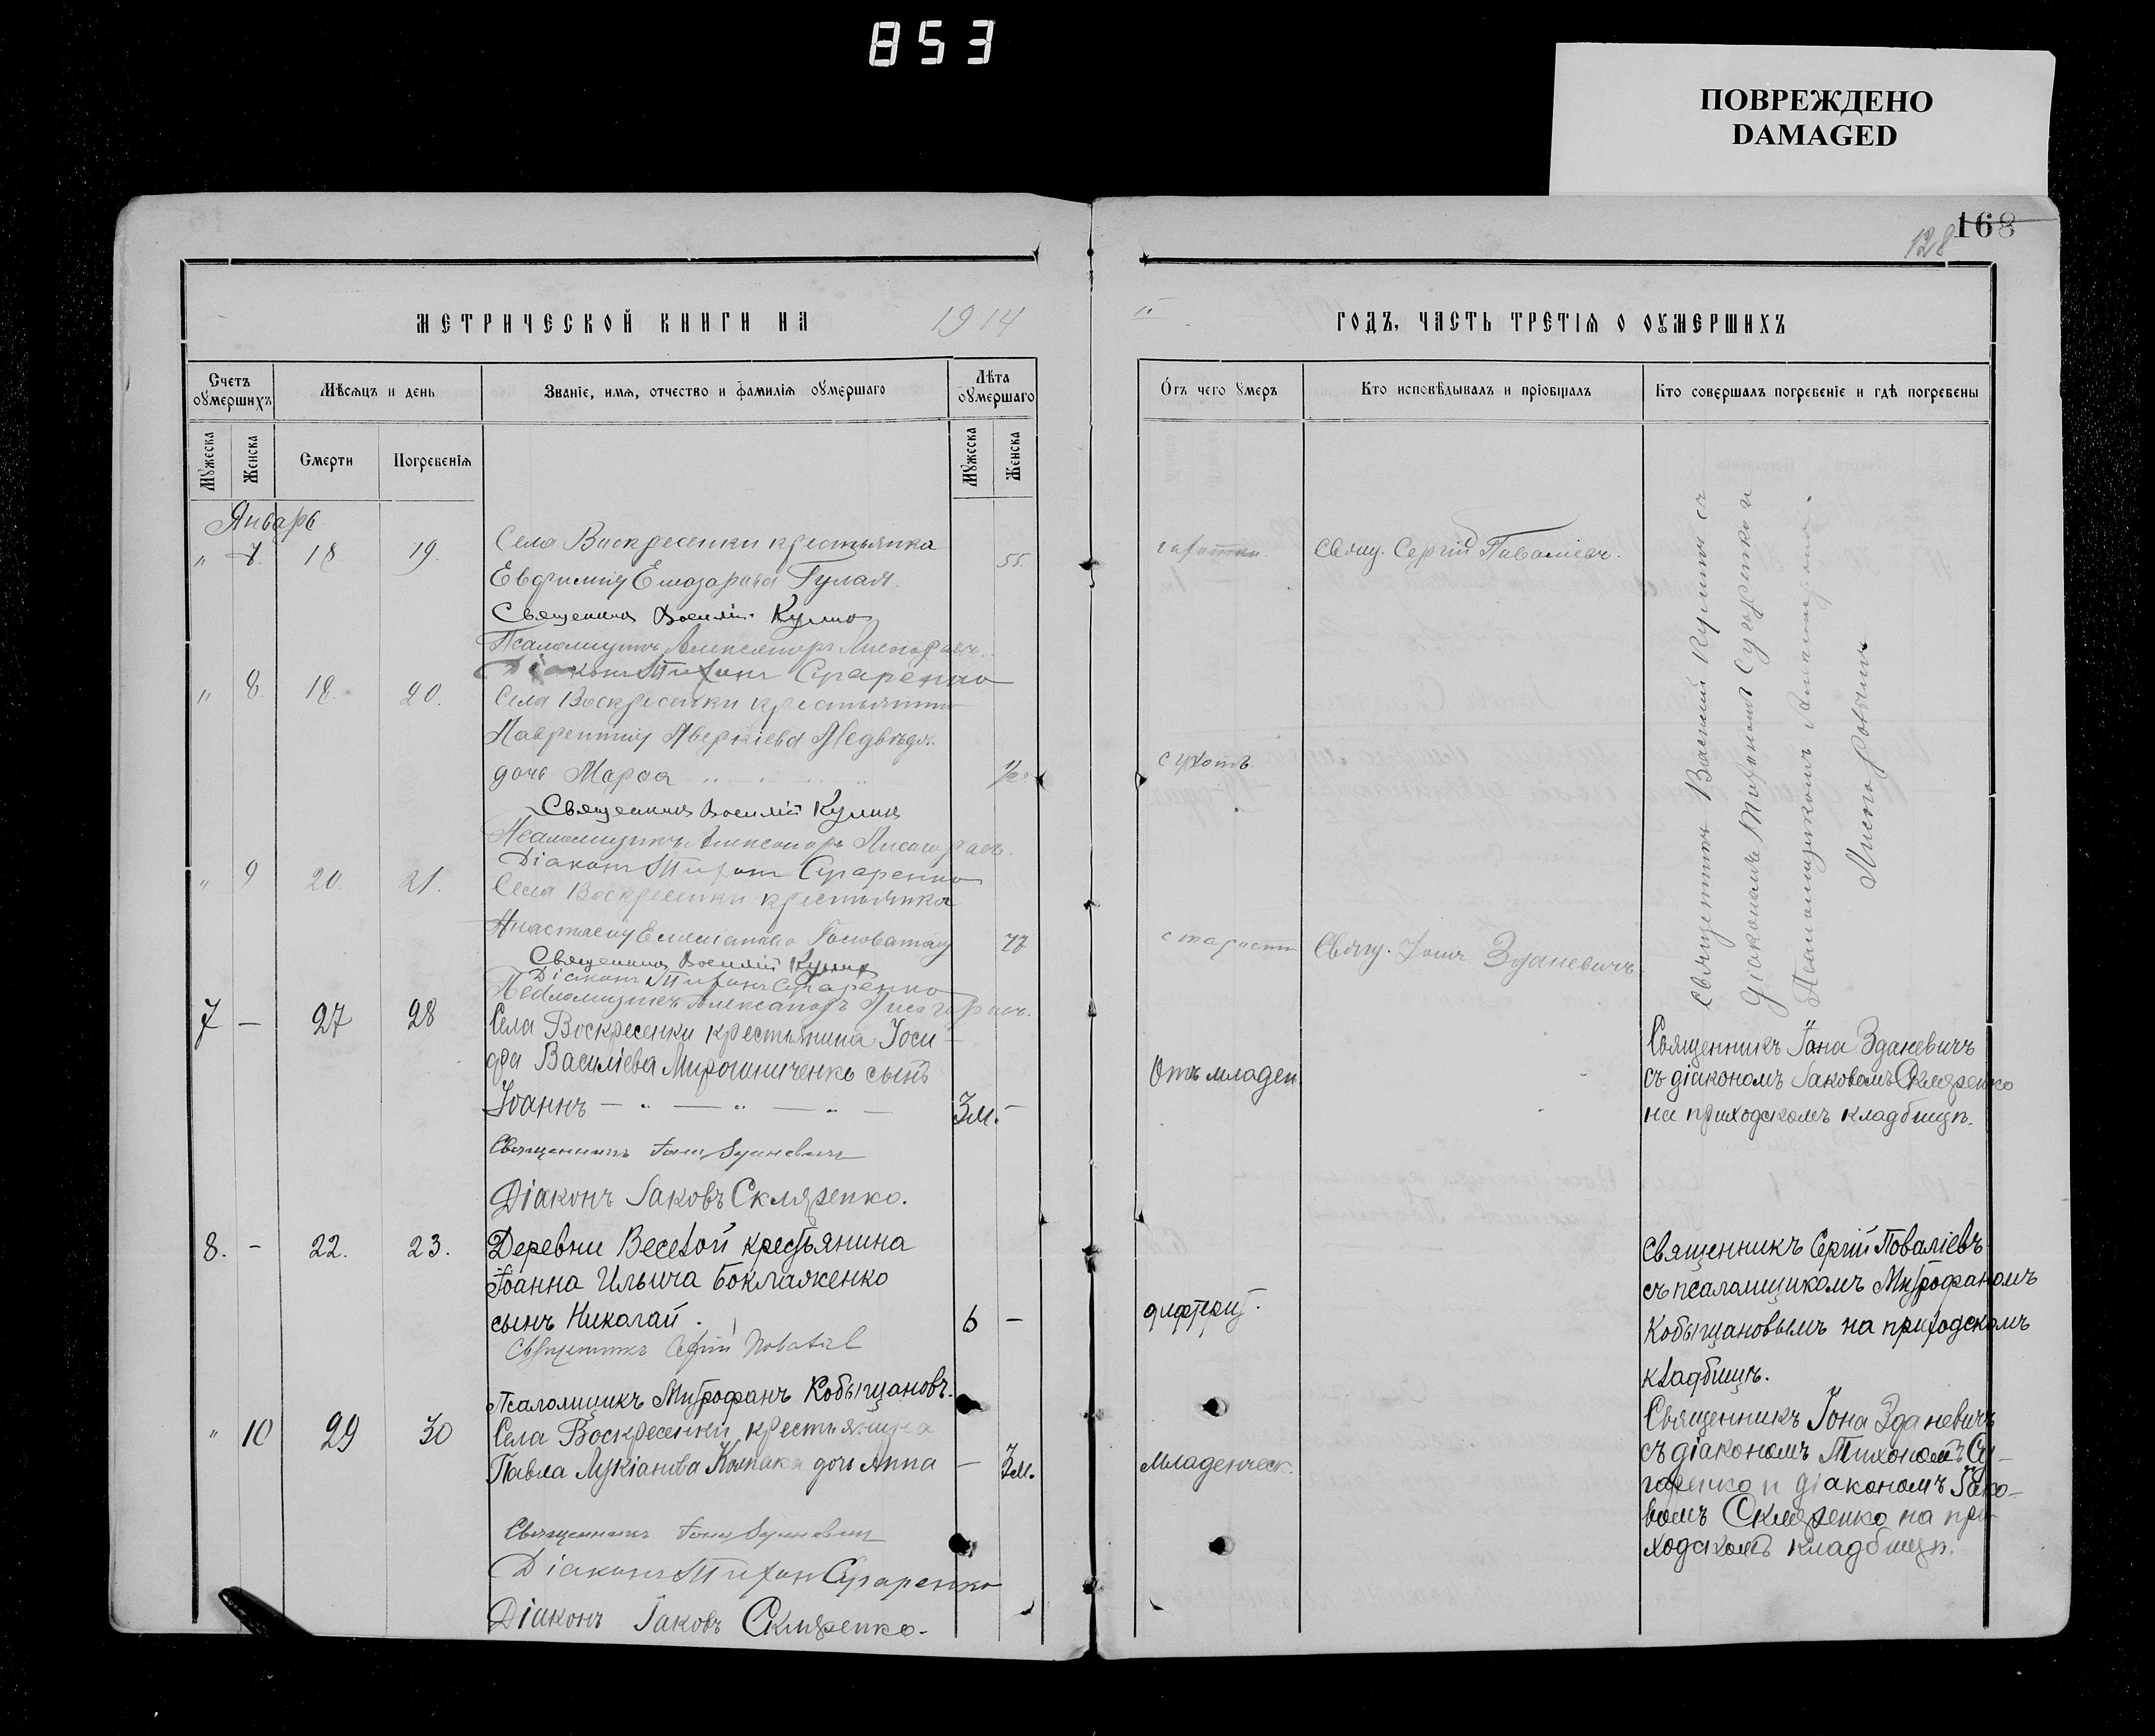 853
ПОВРЕЖДЕНО
DAMAGED
168
128
МЕТРИЧЕСКОЙ КНИГИ НА 1914
ГОДЪ, ЧАСТЬ ТРЕТІЯ О ОУМЕРШИХЪ
Счетъ оумершихъ
Мѣсяцъ и день
Званіе, имя, отчество и фамилія оумершаго
Лѣта оумершаго
Отъ чего умеръ
Кто исповѣдывалъ и пріобщалъ
Кто совершалъ погребеніе и гдѣ погребены
Мужеска
Женска
Смерти
Погребенія
Мужеска
Женска
Январь
" 7. 18 19. Села Воскресенки крестьянка 55. Свящ. Сергій Поваліевъ.
Евфимія Гулая.
Священникъ Василій Кулик
Псаломщикъ Александръ Лисогорскій
Діаконъ Тихонъ Сугаренко
" 8. 18. 20. Села Воскресенки крестьянина
Лаврентія Аверкіева Медвѣдь
дочь Марфа 1/2 сухотъ
Священникъ Василій Кулик
Псаломщикъ Александръ
Діаконъ Тихонъ Сугаренко
" 9 20. 21. Села Воскресенки крестьянка
Анастасія Головатая 77 старости Свящ. Іона Зданевичъ
Священникъ Василій Кулик
Діаконъ Тихонъ Сугаренко
Псаломщикъ Александръ
священникъ Василій съ
діакономъ Тихономъ Сугаренко и
Псаломщикомъ Александромъ
7 — 27 28 Села Воскресенки крестьянина Іоси-
фа Василіева Мирошниченко сынъ Отъ младен.
Іоаннъ — " — " — " — 3м. —
Священникъ Іона Зданевичъ
Діаконъ Іаковъ Скляренко.
Священникъ Іона Зданевичъ
съ діакономъ Іаковомъ Скляренко
на приходскомъ кладбищѣ.
8. - 22. 23. Деревни Веселой крестьянина
Іоанна Ильича Боклаженко
сынъ Николай. 6 — дифтерит.
Священникъ Сергій Поваліев
Псаломщикъ Митрофанъ Кобыщановъ.
Священникъ Сергій Поваліевъ
съ псаломщикомъ Митрофаномъ
Кобыщановымъ на приходскомъ
кладбищѣ.
" 10 29 30 Села Воскресенки крестьянина
Павла Лукіанова Колпака дочь Анна — 3м. Младенческ.
Священникъ Іона Зданевичъ
Діаконъ Тихонъ Сугаренко
Діаконъ Іаковъ Скляренко.
Священникъ Іона Зданевичъ
съ діакономъ Тихономъ Су-
гаренко и діакономъ Іако-
вомъ Скляренко на при-
ходскомъ кладбищѣ.